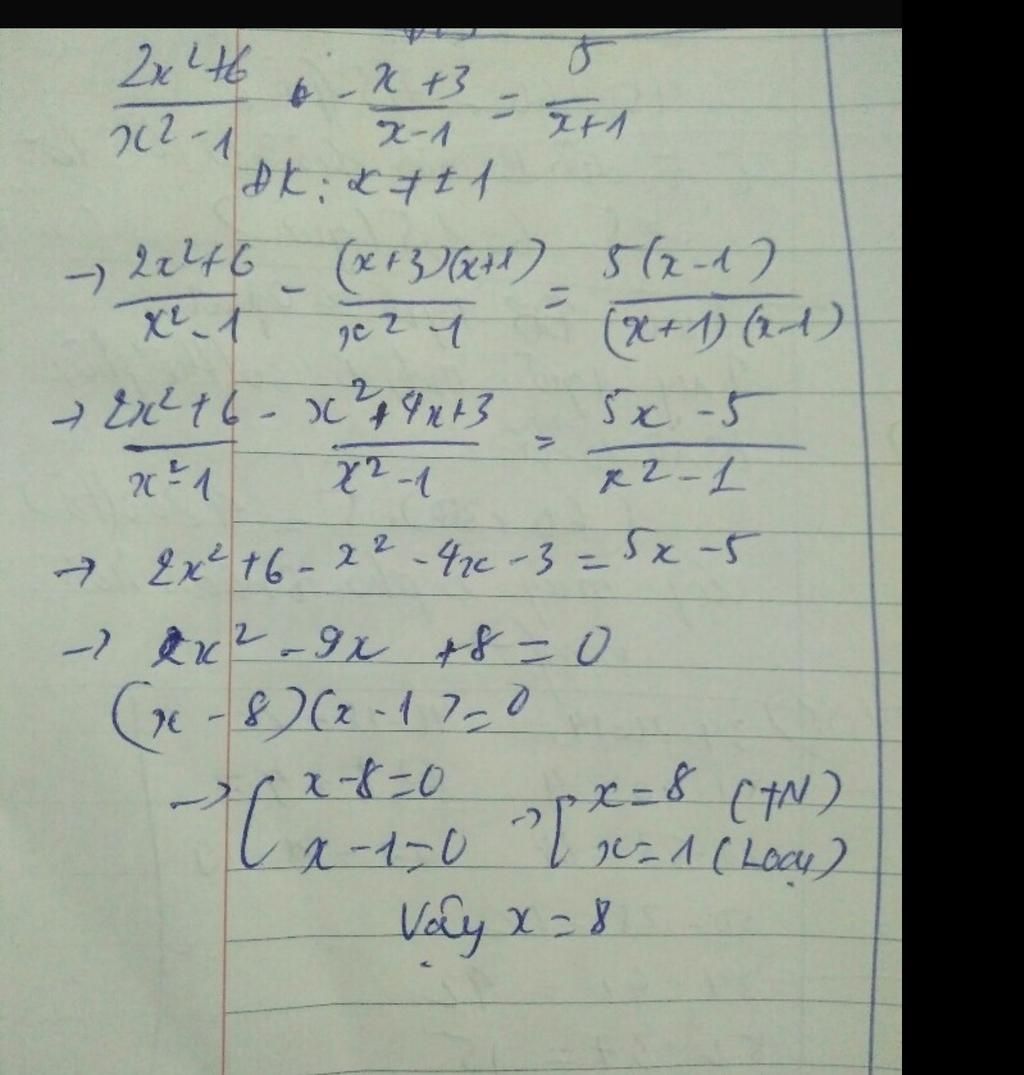 (2x²+6)/(x²-1) - (x+3)/(x-1) = 5/(x+1)
ĐK: x ≠ ±1
→ (2x²+6)/(x²-1) - ((x+3)(x+1))/(x²-1) = (5(x-1))/((x+1)(x-1))
→ (2x²+6)/(x²-1) - (x²+4x+3)/(x²-1) = (5x-5)/(x²-1)
→ 2x²+6-x²-4x-3=5x-5
→ x²-9x+8=0
(x-8)(x-1)=0
→ [ x-8=0 → [ x=8 (TN)
x-1=0 x=1 (Loại)
Vậy x=8